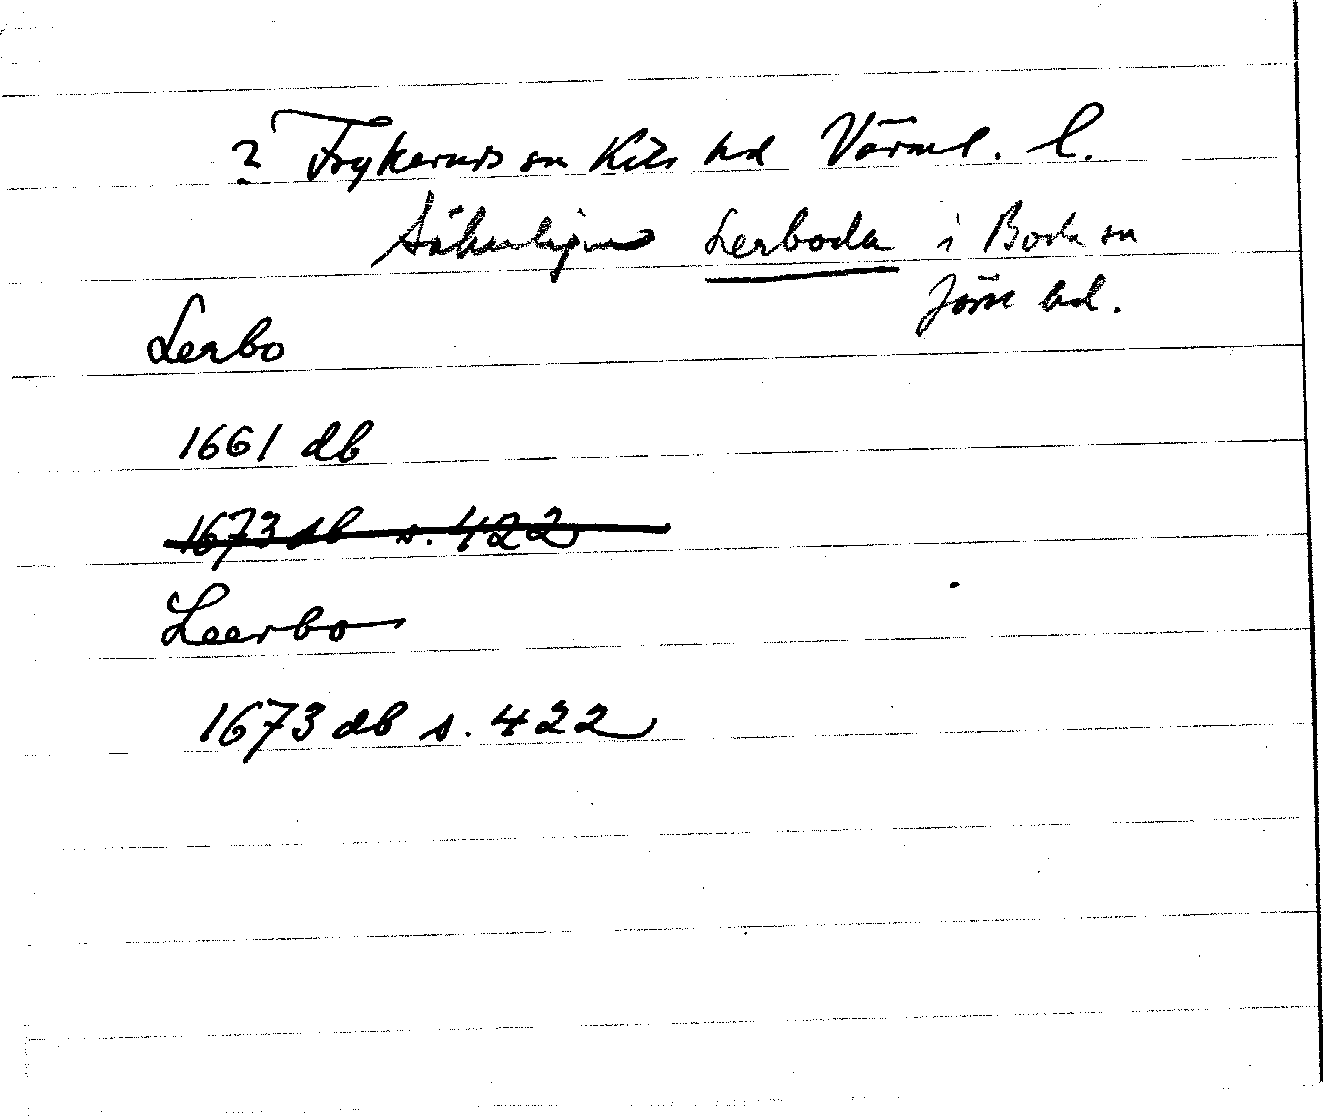 ? Frykeruds sn Kils hd Värml. l.
Säkerligen Lerboda i Boda sn
Jösse hd.
Lerbo
1661 db
1673 db s. 422
Leerbo
1673 db s. 422